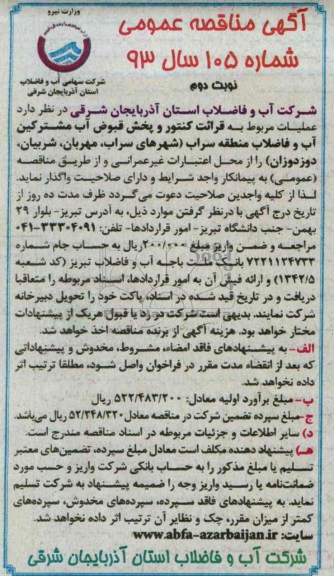 وزارت نیرو
شرکت سهامی آب و فاضلاب
استان آذربایجان شرقی
آگهی مناقصه عمومی
شماره ۱۰۵ سال ۹۳
نوبت دوم
شرکت آب و فاضلاب استان آذربایجان شرقی در نظر دارد
عملیات مربوط به قرائت کنتور و پخش قبوض آب مشترکین
آب و فاضلاب منطقه سراب (شهرهای سراب، مهربان، شربیان،
دوزدوزان) را از محل اعتبارات غیرعمرانی و از طریق مناقصه
(عمومی) به پیمانکار واجد شرایط و دارای صلاحیت واگذار نماید.
لذا از کلیه واجدین صلاحیت دعوت می‌گردد ظرف مدت ده روز از
تاریخ درج آگهی با درنظر گرفتن موارد ذیل، به آدرس تبریز- بلوار ۲۹
بهمن- جنب دانشگاه تبریز- امور قراردادها- تلفن: ۳۳۳۰۴۰۹۱-۰۴۱
مراجعه و ضمن واریز مبلغ ۲۰۰/۰۰۰ ریال به حساب جام شماره
۷۲۳۱۱۲۴۷۳۳ بانک ملت باجه آب و فاضلاب تبریز (کد شعبه
۱۳۴۲/۵) و ارائه فیش آن به امور قراردادها، اسناد مربوطه را متعاقبا
دریافت و در تاریخ قید شده در اسناد، پاکت خود را تحویل دبیرخانه
شرکت نمایند. بدیهی است شرکت در رد یا قبول هریک از پیشنهادات
مختار خواهد بود. هزینه آگهی از برنده مناقصه اخذ خواهد شد.
الف- به پیشنهادهای فاقد امضاء، مشروط، مخدوش و پیشنهاداتی
که بعد از انقضاء مدت مقرر در فراخوان واصل شود، مطلقا ترتیب اثر
داده نخواهد شد.
ب- مبلغ برآورد اولیه معادل: ۵۲۲/۴۸۳/۲۰۰ ریال
ج- مبلغ سپرده تضمین شرکت در مناقصه معادل ۵۲/۲۴۸/۳۲۰ ریال می‌باشد.
د) سایر اطلاعات و جزئیات مربوطه در اسناد مناقصه مندرج است.
هـ) پیشنهاد دهنده مکلف است معادل مبلغ سپرده، تضمین‌های معتبر
تسلیم یا مبلغ مذکور را به حساب بانکی شرکت واریز و حسب مورد
ضمانتنامه یا رسید واریز وجه را ضمیمه پیشنهاد به شرکت تسلیم
نماید. به پیشنهادهای فاقد سپرده، سپرده‌های مخدوش، سپرده‌های
کمتر از میزان مقرر، چک و نظایر آن ترتیب اثر داده نخواهد شد.
سایت: www.abfa-azarbaijan.ir
شرکت آب و فاضلاب استان آذربایجان شرقی